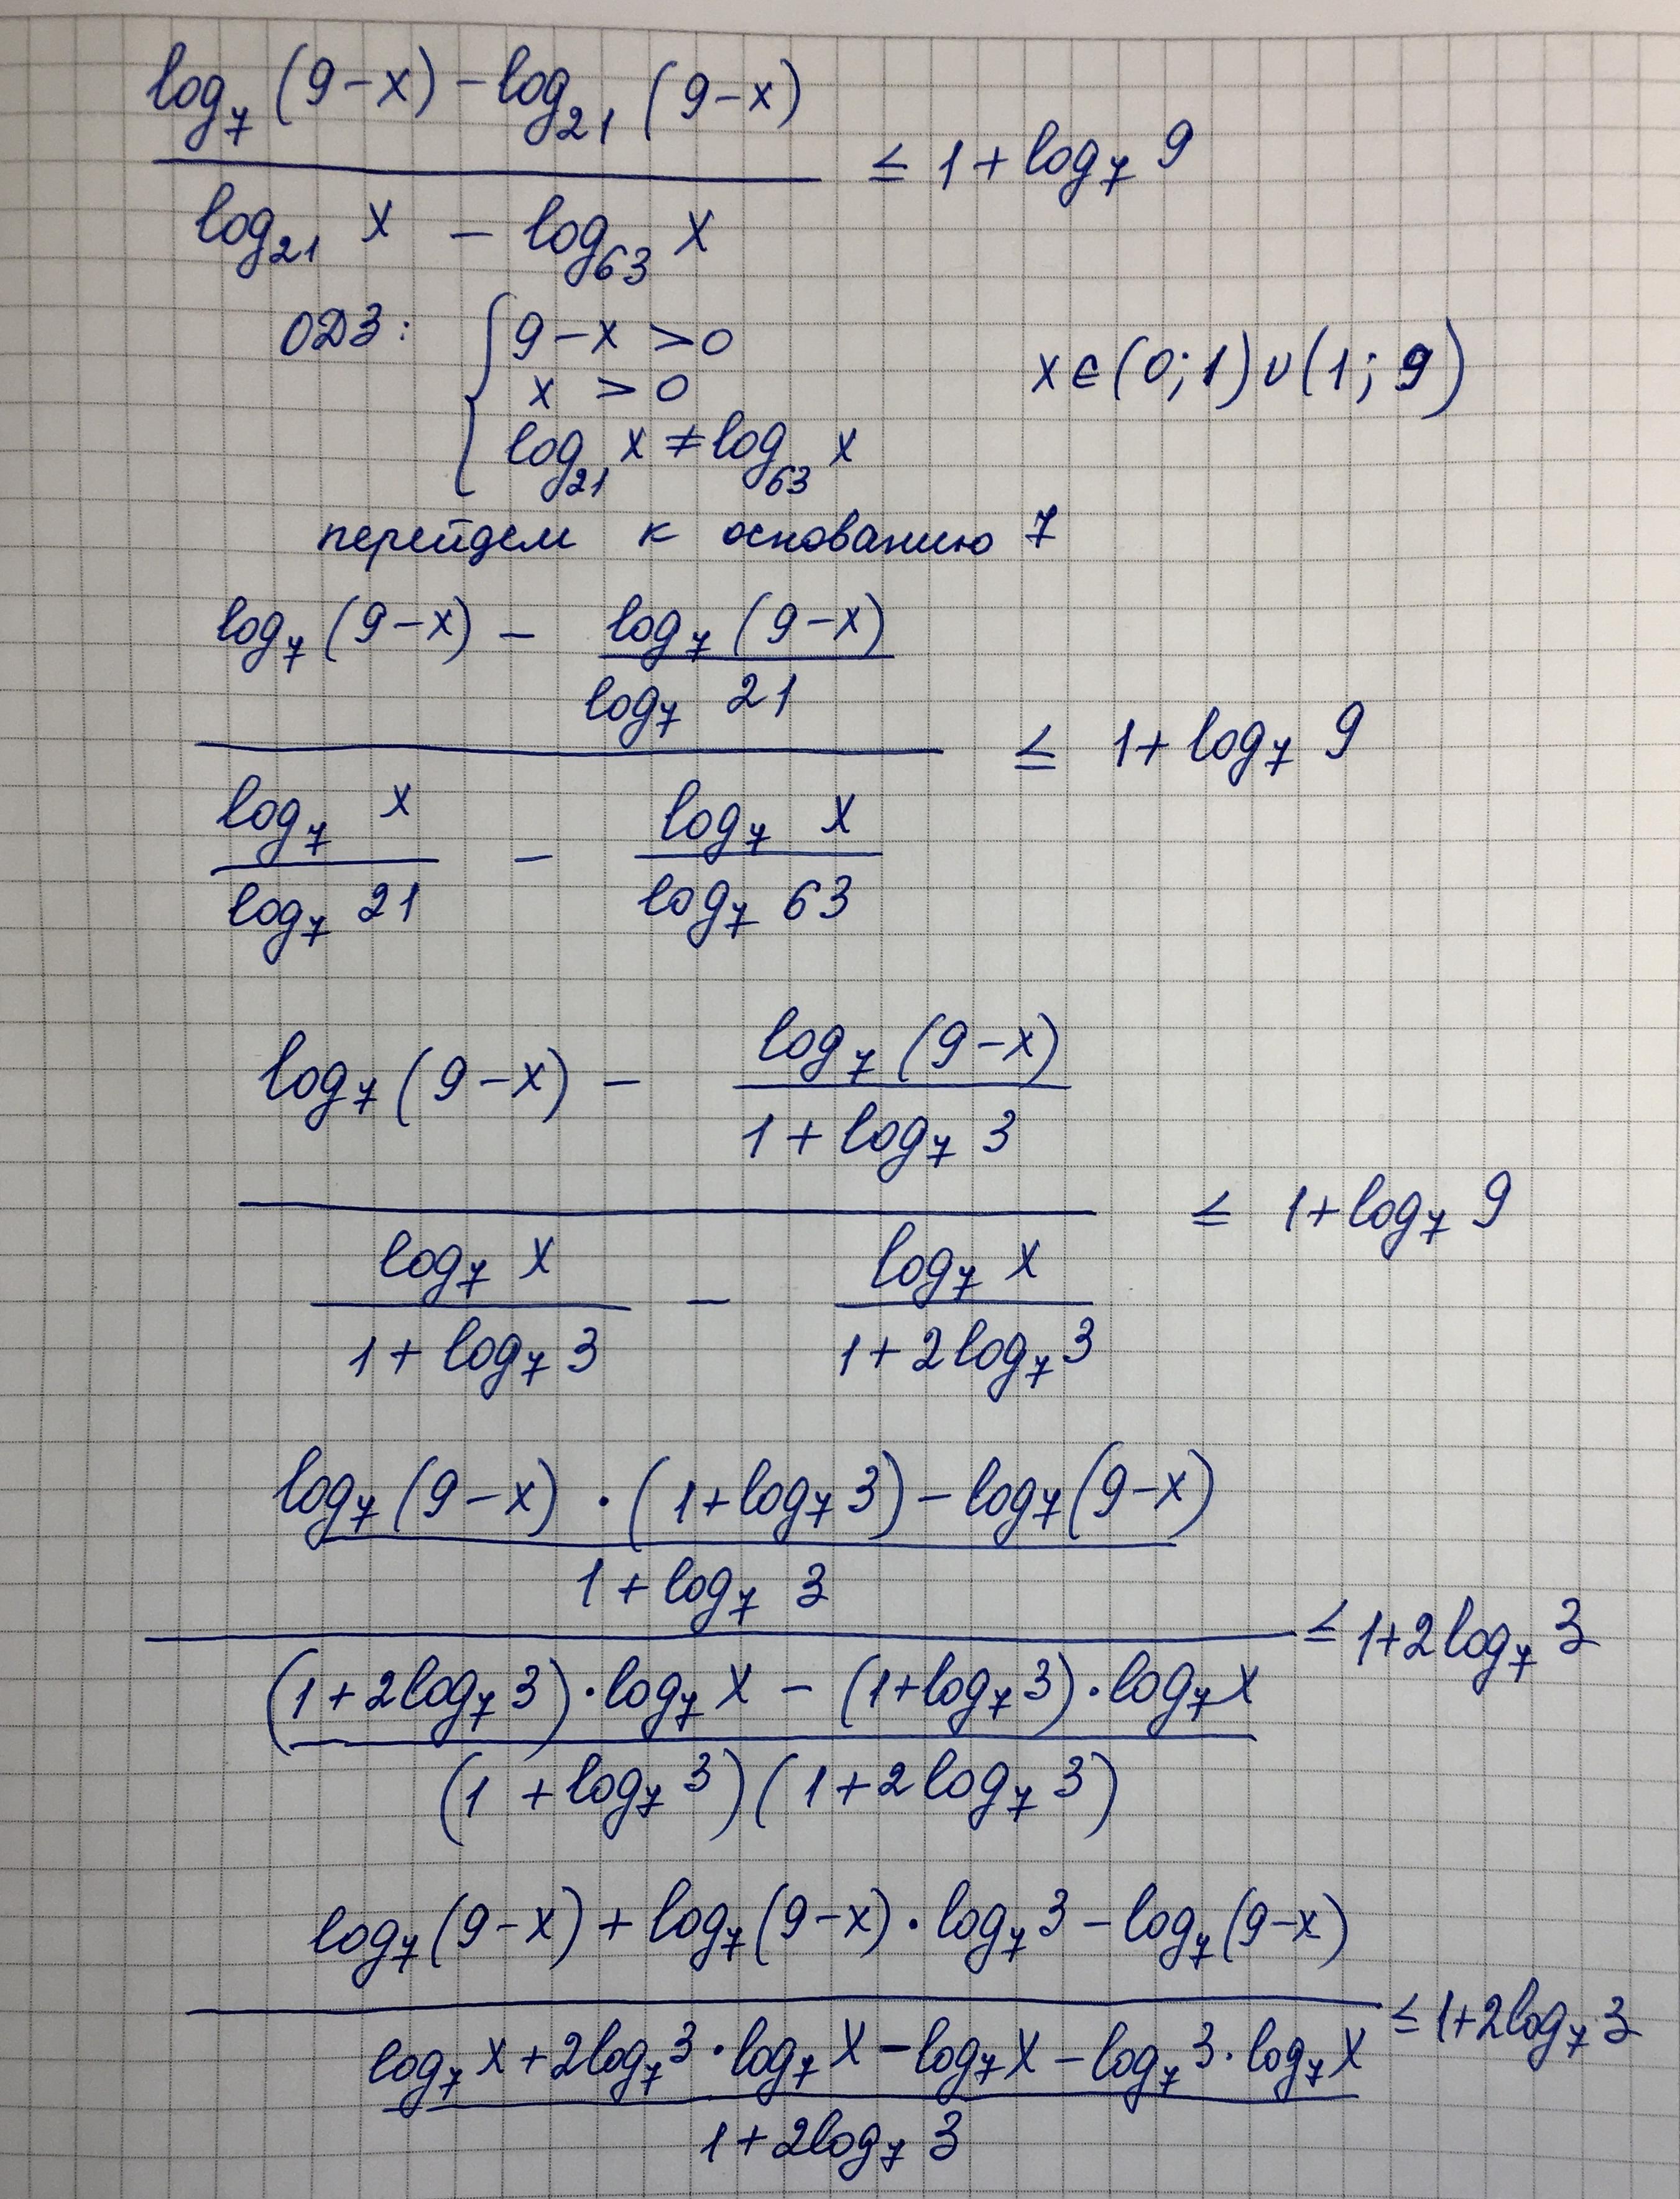 log₇(9-x) - log₂₁(9-x)
≤ 1 + log₇ 9
log₂₁ x - log₆₃ x
ОДЗ: { 9-x > 0
x > 0
log₂₁ x ≠ log₆₃ x
x ∈ (0; 1) ∪ (1; 9)
перейдем к основанию 7
log₇(9-x) - log₇(9-x)
log₇ 21
≤ 1 + log₇ 9
log₇ x - log₇ x
log₇ 21 log₇ 63
log₇(9-x) - log₇(9-x)
1 + log₇ 3
≤ 1 + log₇ 9
log₇ x - log₇ x
1 + log₇ 3 1 + 2log₇ 3
log₇(9-x) · (1 + log₇ 3) - log₇(9-x)
1 + log₇ 3
≤ 1 + 2log₇ 3
(1 + 2log₇ 3) · log₇ x - (1 + log₇ 3) · log₇ x
(1 + log₇ 3)(1 + 2log₇ 3)
log₇(9-x) + log₇(9-x) · log₇ 3 - log₇(9-x)
≤ 1 + 2log₇ 3
log₇ x + 2log₇ 3 · log₇ x - log₇ x - log₇ 3 · log₇ x
1 + 2log₇ 3